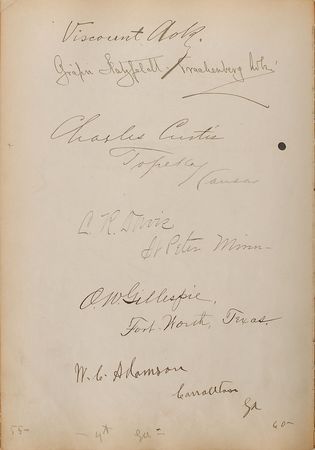 Viscount Aoki.
Gräfin Hatzfeldt-Trachenberg Aoki
Charles Curtis
Topeka
Kansas
C. R. Davis
St Peter Minn-
O. W. Gillespie,
Fort Worth, Texas.
W. C. Adamson
Carrollton
Ga
55-
- 4th Ga-
60-